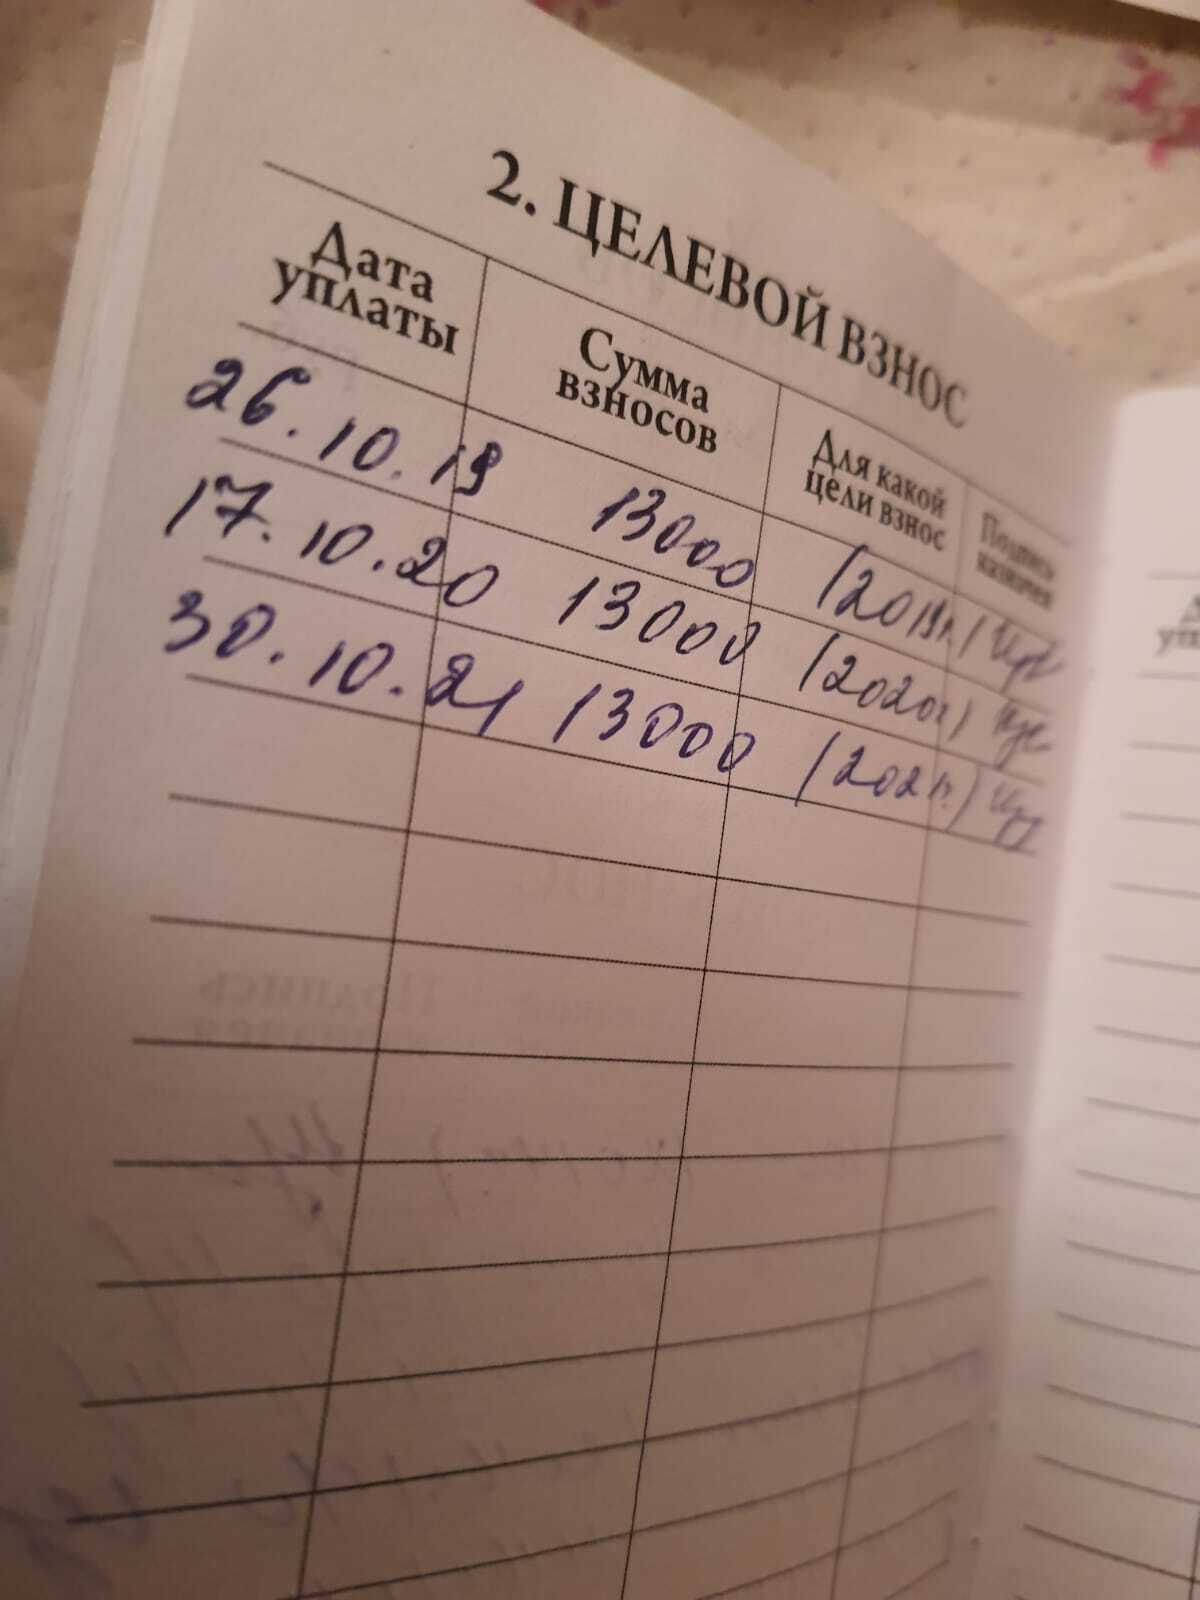 2. ЦЕЛЕВОЙ ВЗНОС
Дата уплаты Сумма взносов Для какой цели взнос Подпись казначея
26.10.19 13000 (2019г.)
17.10.20 13000 (2020г)
30.10.21 13000 (2021г.)